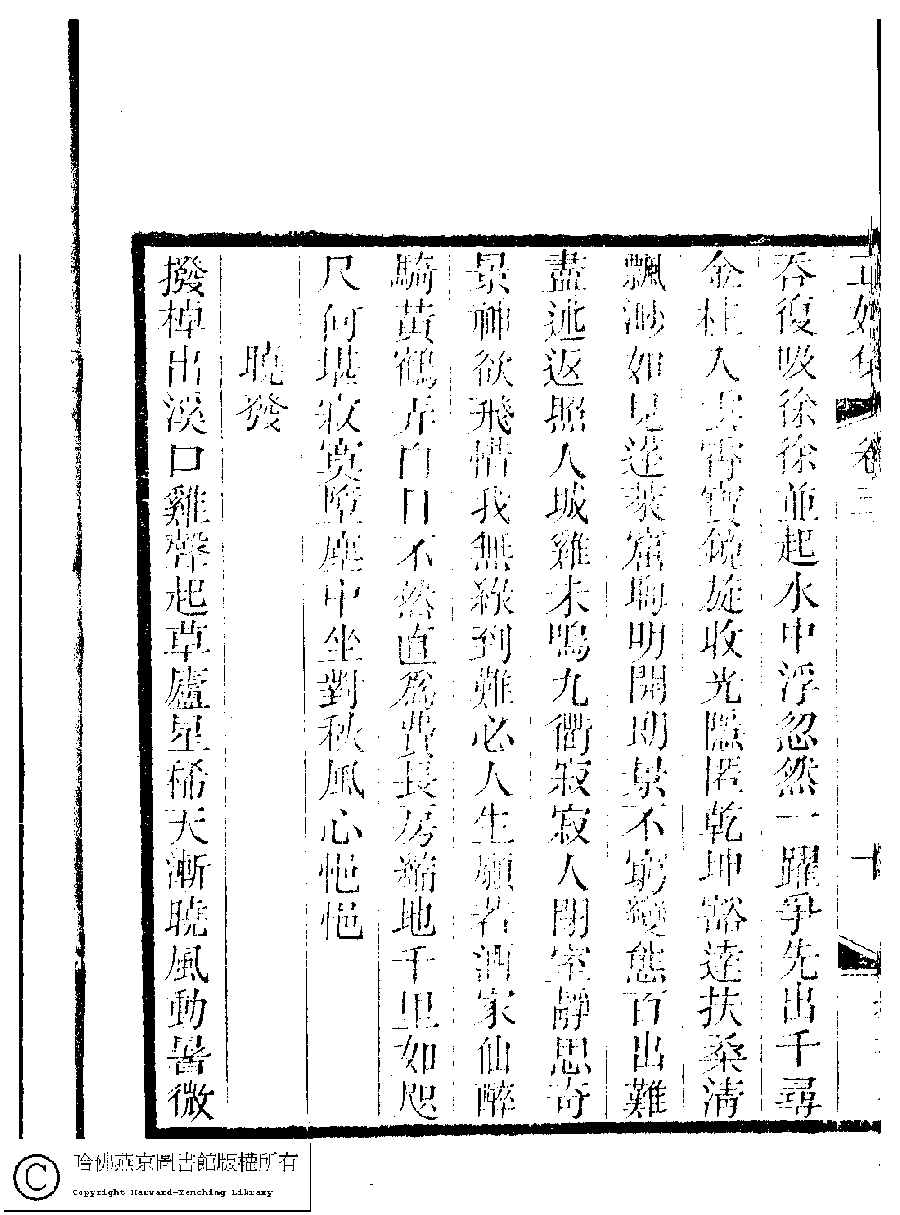 卷三
十
吞復吸徐徐並起水中浮忽然一躍爭先出千尋
金柱入雲霄寶鏡旋收光隱匿乾坤豁達扶桑清
飄渺如見蓬萊窟晦明開朗景不窮變態百出難
盡述返照人城雞未鳴九衢寂寂人閉室靜思奇
景神欲飛惜我無緣到難必人生願若酒家仙醉
騎黃鶴弄白日不然直爲費長房縮地千里如咫
尺何堪寂寞墮塵中坐對秋風心悒悒
曉發
撥棹出溪口雞聲起草廬星稀天漸曉風動暑微
哈佛燕京圖書館版權所有
Copyright Harvard-Yenching Library